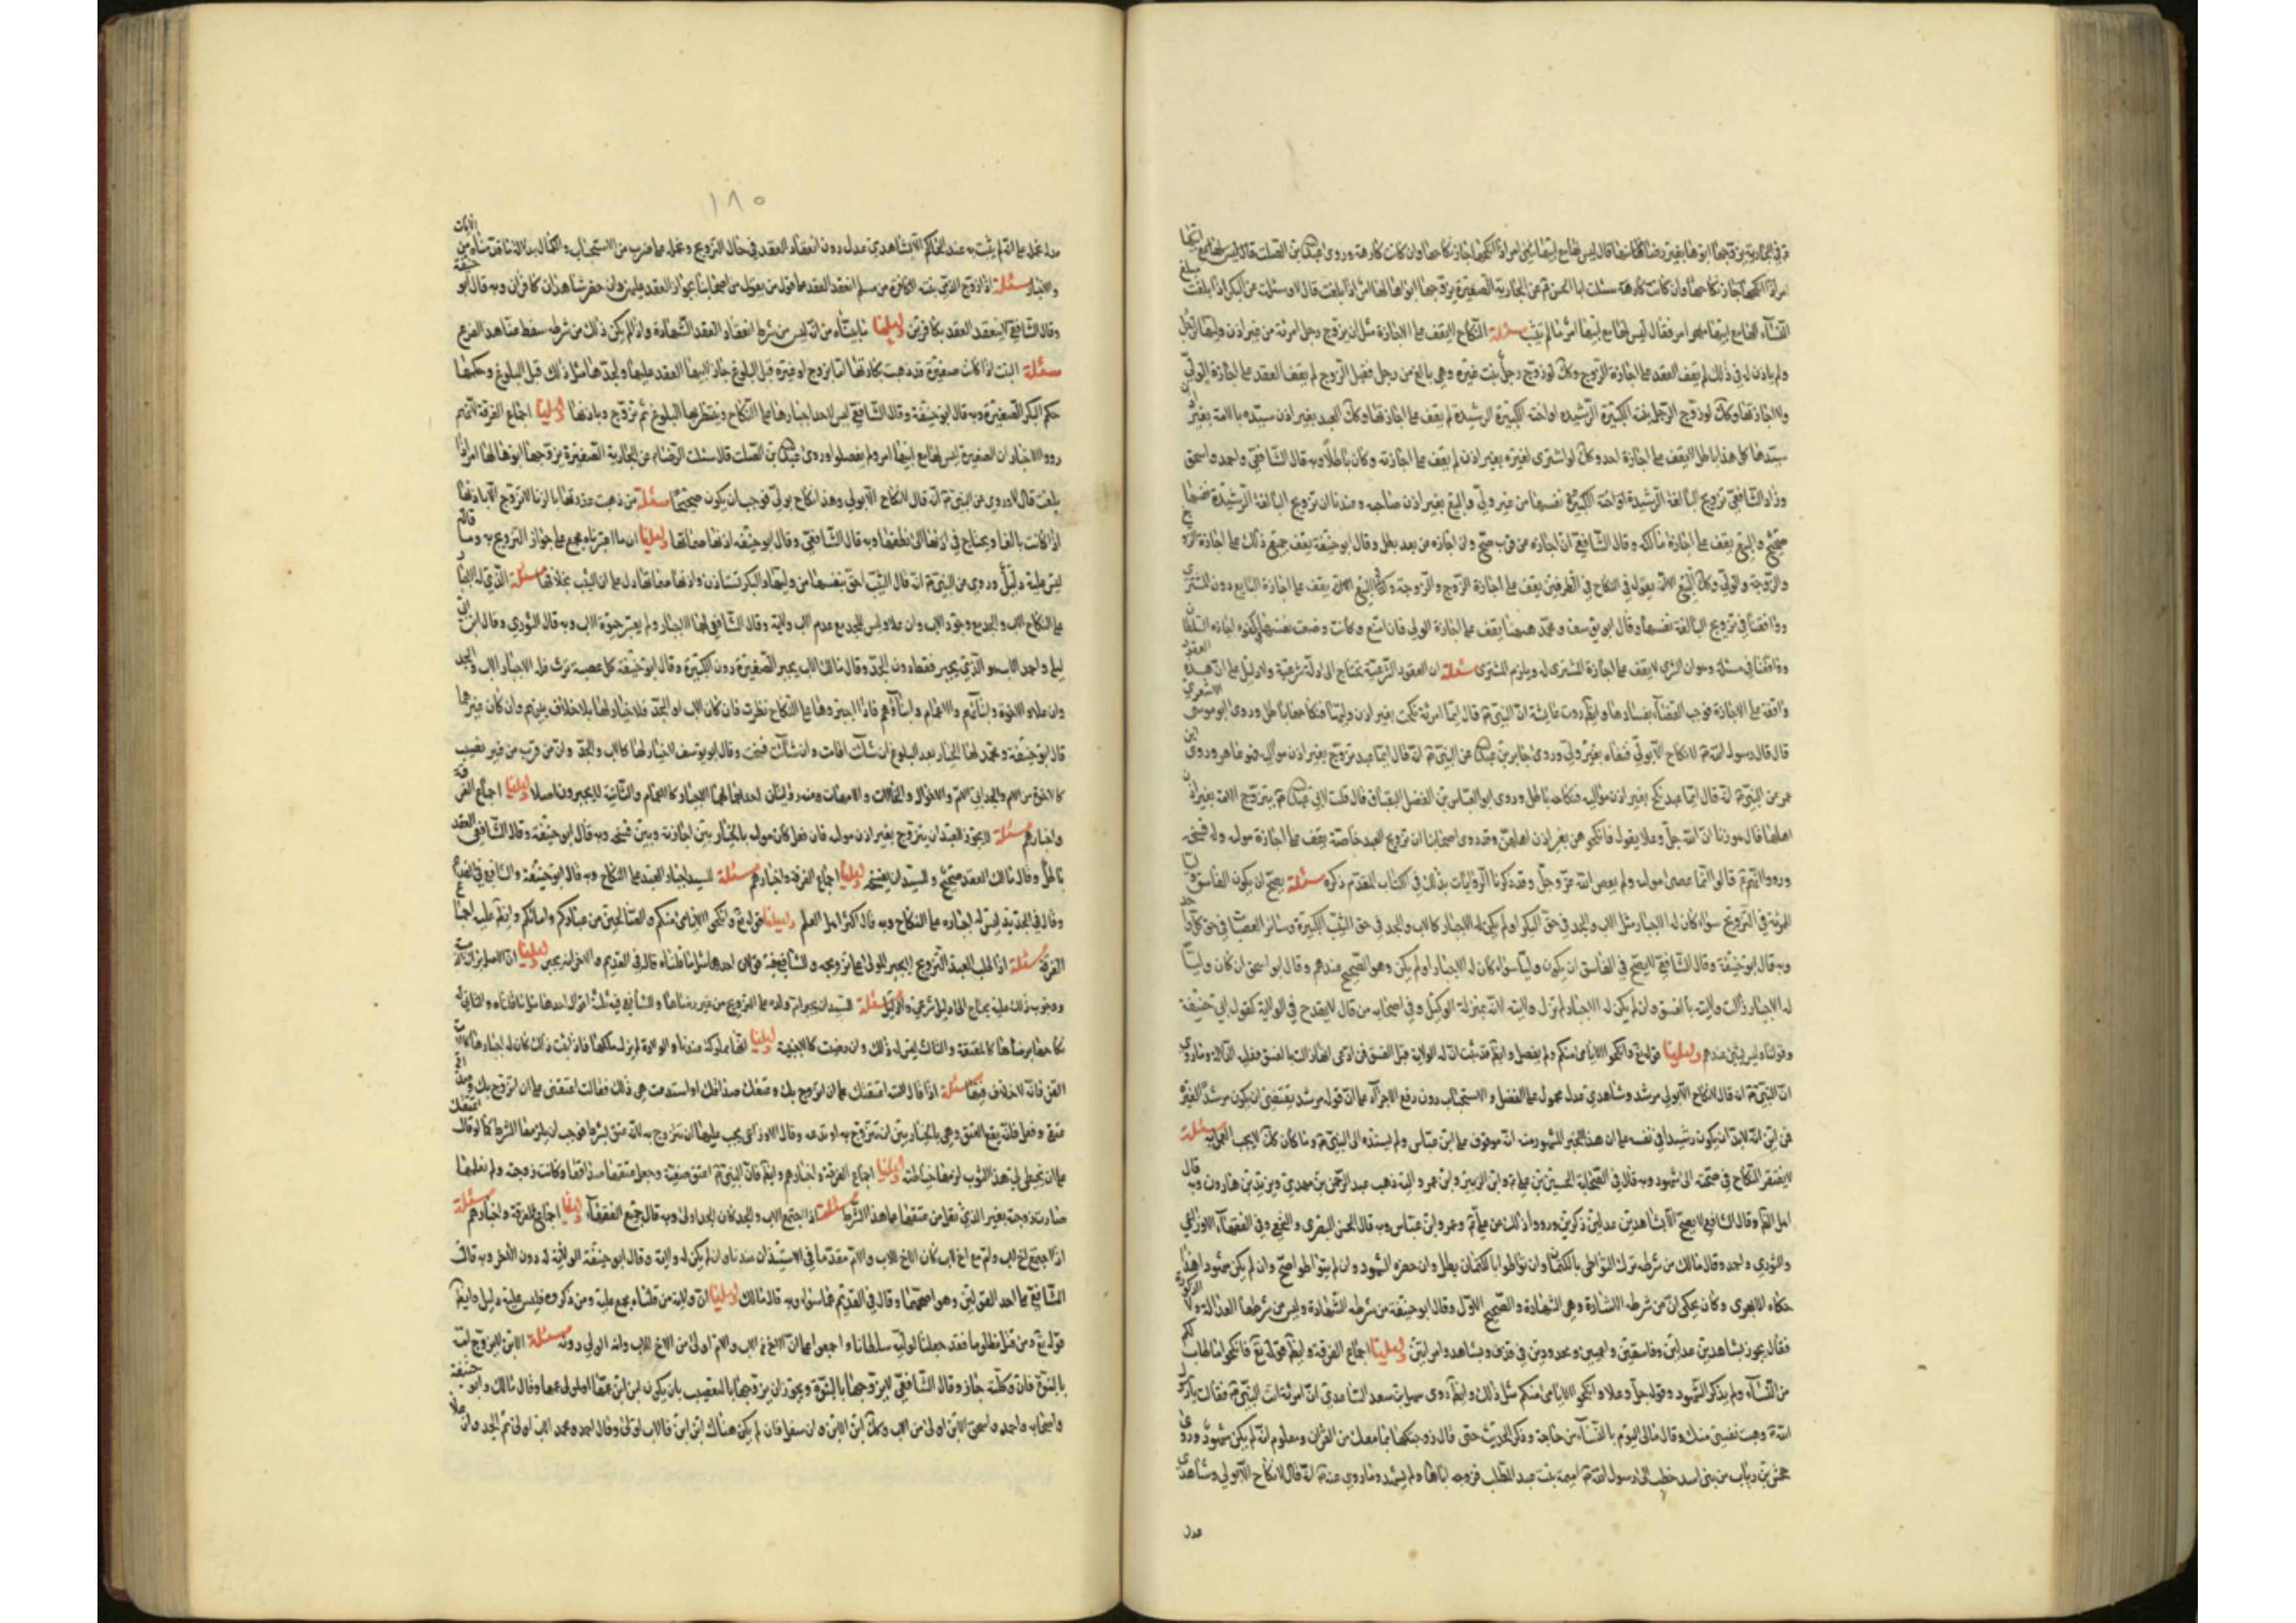 في الجارية يزوجها ابوها بغير رضا منها قال ليس لها مع ابيها امر اذا انكحها جاز نكاحه وان كانت كارهة وروى عبد الله بن الصلت قال ليس لها مع ابيها
امر اذا انكحها جاز نكاحه وان كانت كارهة سئلت ابا الحسن ع عن الجارية الصغيرة يزوجها ابوها لها امر اذا بلغت قال لا وسئلت عن البكر اذا بلغت مبلغ
النساء الها مع ابيها امر فقال ليس لها مع ابيها امر ما لم تثيب مسئلة النكاح لا يقف على الاجازة مثل ان يزوج رجل امرئة من غير اذن وليها لرجل
ولم ياذن له في ذلك لم يقف العقد على اجازة الزوج وكك لو زوج رجل بنت غيره وهي بالغ من رجل فقبل الزوج لم يقف العقد على اجازة الولي
ولا اجازتها وكك لو زوج الرجل بنته الكبيرة الرشيدة او اخته الكبيرة الرشيدة لم يقف على اجازتها وكك العبد بغير اذن سيده والامة بغير اذن
سيدها كل هذا باطل لا يقف على اجازة احد وكك لو اشترى لغيره بغير اذن لم يقف على اجازته وكان باطلا وبه قال الشافعي واحمد واسحق
وزاد الشافعي تزويج البالغة الرشيدة نفسها من غير ولي والبيع بغير اذن صاحبه وعندنا ان تزويج البالغة الرشيدة نفسها
صحيح والبيع يقف على اجازة مالكه وقال الشافعي ان اجازه من قرب صح وان اجازه من بعد بطل وقال ابو حنيفة يقف جميع ذلك على اجازة الزوج
والزوجة والولي وكك البيع الا انه يقول في النكاح في الطرفين يقف على اجازة الزوج والزوجة وكك البيع الا انه يقف على اجازة البايع دون المشتري
ووافقنا في تزويج البالغة نفسها وقال ابو يوسف ومحمد هيهنا يقف على اجازة الولي فان امتنع وكانت وضعت نفسها في كفو اجازه السلطان
ووافقنا في مسئلة وهو ان الشرى لا يقف على اجازة المشترى له ويلزم المشترى مسئلة ان العقود الشرعية تحتاج الى ادلة شرعية ولا دليل على ان هذه العقود
واقفة على الاجازة فوجب القضاء بفسادها وايضا روت عايشة ان النبي ص قال ايما امرئة نكحت بغير اذن وليها فنكاحها باطل وروى ابو موسى الاشعري
قال قال رسول الله ص لا نكاح الا بولي فنفاه بغير ولي وروى جابر بن عبد الله عن النبي ص انه قال ايما عبد تزوج بغير اذن مواليه فهو عاهر وروى ابن
عمر عن النبي ص انه قال ايما عبد نكح بغير اذن مواليه فنكاحه باطل وروى ابو العباس بن الفضل البقباق قال قلت لابي عبد الله ع يتزوج الامة بغير اذن
اهلها قال هو زنا ان الله جل وعلا يقول فانكحوهن باذن اهلهن وقد روى اصحابنا ان تزويج العبد خاصة يقف على اجازة مولاه وله فسخه
ورووا انهم ع قالوا انما عصى مولاه ولم يعص الله عز وجل وقد ذكرنا الروايات بذلك في الكتاب المقدم ذكره مسئلة يصح ان يكون الفاسق وليا
للمرئة في التزويج سواء كان له الاجبار مثل الاب والجد في حق البكر او لم يكن له الاجبار كالاب والجد في حق الثيب الكبيرة وساير العصبات في حق كل واحد
وبه قال ابو حنيفة وقال الشافعي لا يصح في الفاسق ان يكون وليا سواء كان له الاجبار او لم يكن وهو الصحيح عندهم وقال ابو اسحق ان كان وليا
له الاجبار زالت ولايته بالفسق وان لم يكن له الاجبار لم تزل ولايته لانه بمنزلة الوكيل وفي اصحابه من قال لا يقدح في الولاية كقول ابي حنيفة
وقولنا وليس بشئ عندهم دليلنا قوله تع وانكحوا الايامى منكم ولم يفصل وايضا قد ثبت ان له الولاية قبل الفسق فمن ادعى انها زالت بالفسق فعليه الدلالة وما روي
ان النبي ص انه قال لا نكاح الا بولي مرشد وشاهدي عدل محمول على الفضل والاستحباب دون رفع الاجزاء على ان قوله مرشد يقتضي ان يكون مرشدا لغيره
فمن اين انه لا بد ان يكون رشيدا في نفسه على ان هذا الخبر المشهور فيه انه موقوف على ابن عباس ولم يسنده الى النبي ص وما كان كك لا يجب العمل به مسئلة
لا يفتقر النكاح في صحته الى شهود وبه قال في الصحابة الحسين بن علي ع وابن الزبير وابن عمر واليه ذهب عبد الرحمن بن مهدي ويزيد بن هارون وبه قال
اهل الظاهر وقال الشافعي لا يصح الا بشاهدين عدلين ذكرين ورووا ذلك عن علي ع وعمر وابن عباس وبه قال الحسن البصري والنخعي وفي الفقهاء الاوزاعي
والثوري واحمد وقال مالك من شرطه ترك التواطي بالكتمان وان تواطوا بالكتمان بطل وان حضره الشهود وان لم يتواطوا صح وان لم يكن شهود
حكاه الابهري وكان يحكي ان من شرطه الاشادة وهي الشهادة والصحيح الاول وقال ابو حنيفة من شرطه الشهادة وليس من شرطها العدالة ولا الذكورة
فقال يجوز بشاهدين عدلين وفاسقين واعميين ومحدودين في قذف وبشاهد وامرأتين دليلنا اجماع الفرقة وايضا قوله تع فانكحوا ما طاب لكم
من النساء ولم يذكر الشهود وقوله جل وعلا وانكحوا الايامى منكم مثل ذلك وايضا روى سهل بن سعد الساعدي ان امرئة اتت النبي ص فقالت يا رسول
الله ص وهبت نفسي منك وقال مالي اليوم بالنساء من حاجة وذكر الحديث حتى قال زوجتكها بما معك من القران ومعلوم انه لم يكن شهود وروى
جحش بن رياب من بني اسد خطب الى رسول الله ص اميمة بنت عبد المطلب فزوجه اياها ولم يشهد وما روي عنه ص انه قال لا نكاح الا بولي وشاهدي
عدل
١٨٥
عدل نحمله على انه لم يثبت به عند الحاكم الا بشاهدي عدل دون انعقاد العقد في حال التزويج ونحمله على ضرب من الاستحباب
والاخبار مسئلة اذا زوج الذمي بنته الكافرة من مسلم انعقد العقد على قول من يقول من اصحابنا بجواز العقد عليهن وان حضر شاهدان كافران وبه قال ابو حنيفة
وقال الشافعي لا ينعقد العقد بكافرين دليلنا ما بيناه من انه ليس من شرط انعقاد العقد الشهادة واذا لم يكن ذلك من شرطه سقط عنا هذا الفرع
مسئلة البنت اذا كانت صغيرة قد ذهبت بكارتها اما بزوج او غيره قبل البلوغ جاز لابيها العقد عليها ولجدها مثل ذلك قبل البلوغ وحكمها
حكم البكر الصغيرة وبه قال ابو حنيفة وقال الشافعي ليس لاحد اجبارها على النكاح وينتظر بها البلوغ ثم تزوج وباذنها دليلنا اجماع الفرقة لانهم
رووا الاخبار ان الصغيرة ليس لها مع ابيها امر ولم يفصلوا وروى عبد الله بن الصلت قال سئلت الرضا ع عن الجارية الصغيرة يزوجها ابوها الها امر اذا
بلغت قال لا وروي عن النبي ص انه قال لا نكاح الا بولي وهذا نكاح بولي فوجب ان يكون صحيحا مسئلة من ذهبت عذرتها بالزنا لا تزوج الا باذنها
اذا كانت بالغا ويحتاج في اذنها الى نطقها وبه قال الشافعي وقال ابو حنيفة اذنها صماتها دليلنا ان ما اعتبرناه مجمع على جواز التزويج به وما قالوه
ليس عليه دليل وروي عن النبي ص انه قال الثيب احق بنفسها من وليها والبكر تستاذن واذنها صماتها فدل على ان الثيب بخلافها مسئلة الذي له الاجبار
على النكاح الاب والجد مع وجود الاب وان علا وليس للجد مع عدم الاب ولاية وقال الشافعي لهما الاجبار ولم يعتبر حيوة الاب وبه قال الثوري وقال ابن ابي
ليلى واحمد الاب هو الذي يجبر فقط دون الجد وقال مالك الاب يجبر الصغيرة دون الكبيرة وقال ابو حنيفة كل عصبة ترث فله الاجبار الاب والجد
وان علا والاخوة وابنائهم والاعمام وابناؤهم فاذا اجبروها على النكاح نظرت فان كان الاب او الجد فلا خيار لها بلا خلاف بينهم وان كان غيرهما
قال ابو حنيفة ومحمد لها الخيار بعد البلوغ ان شائت اقامت وان شائت فسخت وقال ابو يوسف لا خيار لها كالاب والجد وان من قرب من غير تعصيب
كالاخوة من الام والجد ابي الام والاخوال والخالات والامهات وعنه روايتان احدهما لهما الاجبار كالاعمام والثانية لا يجبرون اصلا دليلنا اجماع الفرقة
واخبارهم مسئلة لا يجوز للعبد ان يتزوج بغير اذن مولاه فان فعل كان مولاه بالخيار بين اجازته وبين فسخه وبه قال ابو حنيفة وقال الشافعي العقد
باطل وقال مالك العقد صحيح وللسيد ان يفسخه دليلنا اجماع الفرقة واخبارهم مسئلة للسيد اجبار العبد على النكاح وبه قال ابو حنيفة والشافعي في القديم
وقال في الجديد ليس له اجباره على النكاح وبه قال اكثر اهل العلم دليلنا قوله تع وانكحوا الايامى منكم والصالحين من عبادكم وامائكم وايضا عليه اجماع
الفرقة مسئلة اذا طلب العبد التزويج لا يجبر المولى على تزويجه وللشافعي فيه قولان احدهما مثل ما قلناه قاله في القديم والاخر انه يجبر دليلنا ان الاصل برائة الذمة
ووجوب ذلك عليه يحتاج الى دليل شرعي ولا دليل مسئلة للسيد ان يجبر ام ولده على التزويج من غير رضاها وللشافعي فيه ثلثة اقوال احدها مثل ما قلناه والثاني له
نكاحها برضاها كالمعتقة والثالث ليس له ذلك وان رضيت كالاجنبية دليلنا انها مملوكة عندنا والولادة لم يزل ملكها فاذا ثبت ذلك كان له اجبارها كالامة
القن فانه لا خلاف فيها مسئلة اذا قال لامته اعتقتك على ان اتزوج بك وعتقك صداقك او استدعت هي ذلك فقالت اعتقني على ان اتزوج بك وصداقي
عتقي وفعل فانه يقع العتق وهي بالخيار بين ان تتزوج به او تدع وقال الاوزاعي يجب عليها ان تتزوج به لانه عتق بشرط فوجب ان يلزمها الشرط كما لو قال اعتقتك
على ان تخيطي لي هذا الثوب لزمها خياطته دليلنا اجماع الفرقة واخبارهم وايضا فان النبي ص اعتق صفية وجعل عتقها صداقها وكانت زوجته ولم نعلمها
صارت زوجته بغير الذي نقل من عتقها على هذا الشرط مسئلة اذا اجتمع الاب والجد كان الجد اولى وبه قال جميع الفقهاء دليلنا اجماع الفرقة واخبارهم مسئلة
اذا اجتمع اخ لاب وام مع اخ لاب كان الاخ للاب والام مقدما في الاستيذان عندنا وان لم يكن له ولاية وقال ابو حنيفة الولاية له دون الاخر وبه قال
الشافعي على احد القولين وهو اصحهما وقال في القديم هما سواء وبه قال مالك دليلنا ان ولاية من قلناه مجمع عليه ومن ذكروه فليس عليه دليل وايضا
قوله تع ومن قتل مظلوما فقد جعلنا لوليه سلطانا واجمعوا على ان الاخ للاب والام اولى من الاخ للاب وانه الولي دونه مسئلة الابن لا يزوج امه
بالبنوة فان وكلته جاز وقال الشافعي لا يزوجها بالبنوة ويجوز ان يزوجها بالتعصيب بان يكون ابن ابن عمها او مولى نعمها وقال مالك وابو حنيفة
واصحابه واحمد واسحق الابن اولى من الاب وكك ابن الابن وان سفل فان لم يكن هناك ابن ابن فالاب اولى وقال احمد ومحمد الاب اولى ثم الجد وان علا